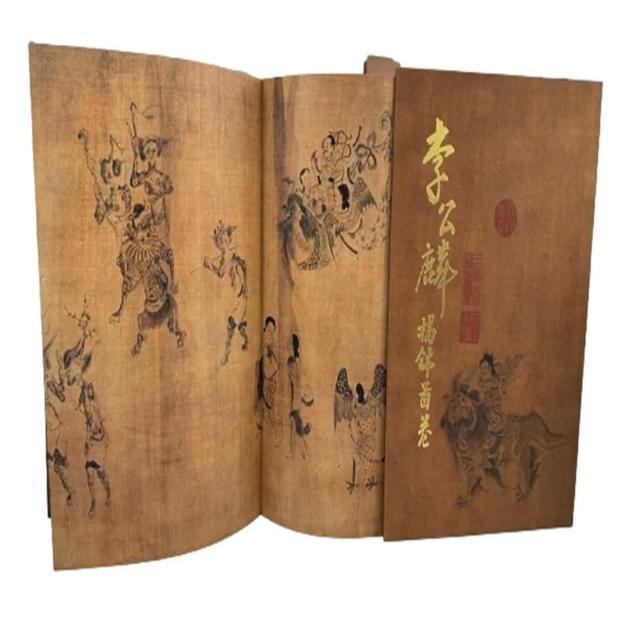 李公麟 揭鉢啚卷